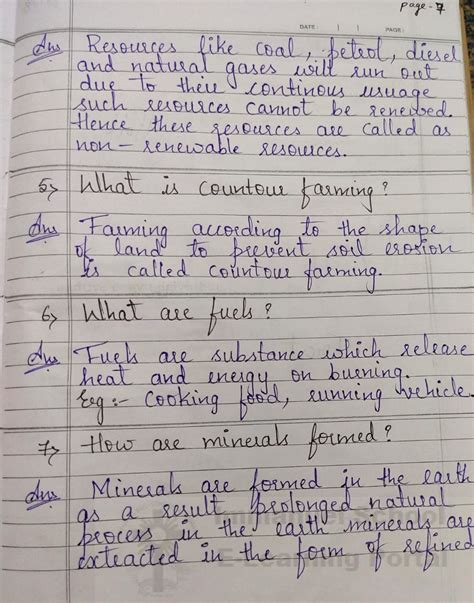 page-7
DATE: | | PAGE:
Ans Resources like coal, petrol, diesel
and natural gases will run out
due to their continous usuage
such resources cannot be renewed.
Hence these resources are called as
non-renewable resources.
5> What is countour farming?
Ans Farming according to the shape
of land to prevent soil erosion
is called countour farming.
6> What are fuels?
Ans Fuels are substance which release
heat and energy on burning.
Eg :- Cooking food, running vehicle.
7> How are minerals formed?
Ans Minerals are formed in the earth
as a result prolonged natural
process in the earth minerals are
extracted in the form of refined
School
E-Learning Portal